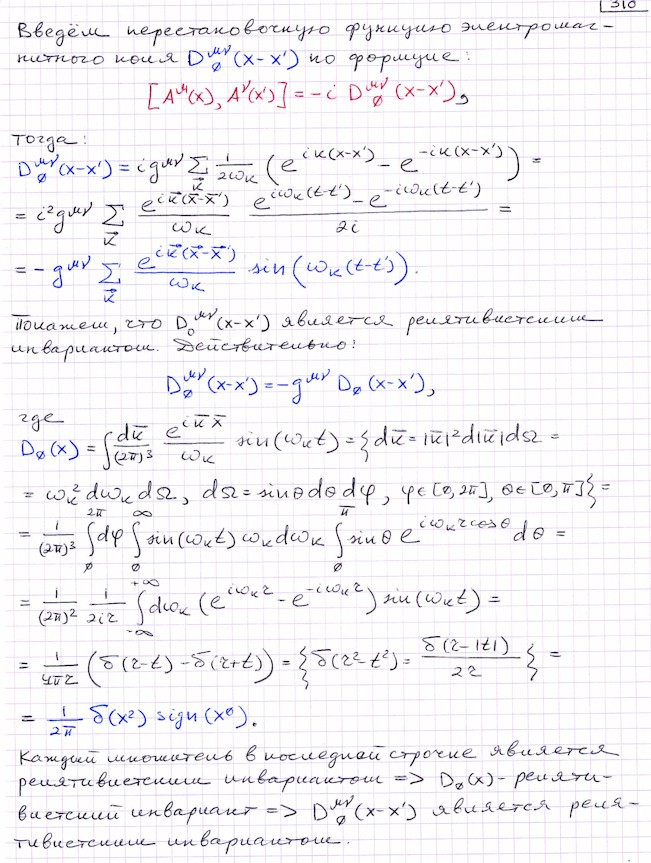 310
Введём перестановочную функцию электромаг-
нитного поля D₀^{μν}(x-x') по формуле:
[A^μ(x), A^ν(x')] = -i D₀^{μν}(x-x'),
тогда:
D₀^{μν}(x-x') = i g^{μν} Σ_{k⃗} 1/(2ω_k) (e^{ik(x-x')} - e^{-ik(x-x')}) =
= i² g^{μν} Σ_{k⃗} e^{ik⃗(x⃗-x⃗')}/ω_k · (e^{iω_k(t-t')} - e^{-iω_k(t-t')})/(2i) =
= - g^{μν} Σ_{k⃗} e^{ik⃗(x⃗-x⃗')}/ω_k sin(ω_k(t-t')).
Покажем, что D₀^{μν}(x-x') является релятивистским
инвариантом. Действительно:
D₀^{μν}(x-x') = -g^{μν} D₀(x-x'),
где
D₀(x) = ∫ dk̄/(2π)³ e^{ik̄x̄}/ω_k sin(ω_k t) = {dk̄ = |k̄|² d|k̄| dΩ =
= ω_k² dω_k dΩ, dΩ = sinθ dθ dφ, φ∈[0,2π], θ∈[0,π]} =
= 1/(2π)³ ∫_0^{2π} dφ ∫_0^∞ sin(ω_k t) ω_k dω_k ∫_0^π sinθ e^{iω_k r cosθ} dθ =
= 1/(2π)² 1/(2ir) ∫_{-∞}^{+∞} dω_k (e^{iω_k r} - e^{-iω_k r}) sin(ω_k t) =
= 1/(4πr) (δ(r-t) - δ(r+t)) = {δ(r²-t²) = δ(r-|t|)/(2r)} =
= 1/(2π) δ(x²) sign(x⁰).
Каждый множитель в последней строчке является
релятивистским инвариантом => D₀(x) - реляти-
вистский инвариант => D₀^{μν}(x-x') является реля-
тивистским инвариантом.